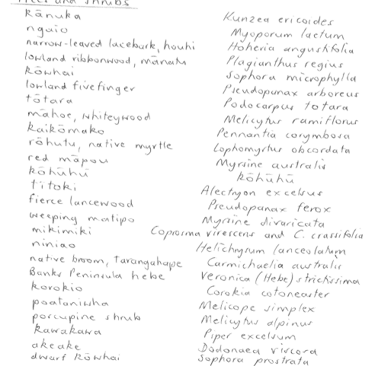 Trees and shrubs
kānuka Kunzea ericoides
ngaio Myoporum laetum
narrow-leaved lacebark, houhi Hoheria angustifolia
lowland ribbonwood, mānatu Plagianthus regius
kōwhai Sophora microphylla
lowland fivefinger Pseudopanax arboreus
tōtara Podocarpus totara
māhoe, whiteywood Melicytus ramiflorus
kaikōmako Pennantia corymbosa
rōhutu, native myrtle Lophomyrtus obcordata
red māpou Myrsine australis
kōhūhū kōhūhū
titoki Alectryon excelsus
fierce lancewood Pseudopanax ferox
weeping matipo Myrsine divaricata
mikimiki Coprosma virescens and C. crassifolia
niniao Helichrysum lanceolatum
native broom, tarangahape Carmichaelia australis
Banks Peninsula hebe Veronica (Hebe) strictissima
korokio Corokia cotoneaster
poataniwha Melicope simplex
porcupine shrub Melicytus alpinus
kawakawa Piper excelsum
akeake Dodonaea viscora
dwarf kōwhai Sophora prostrata